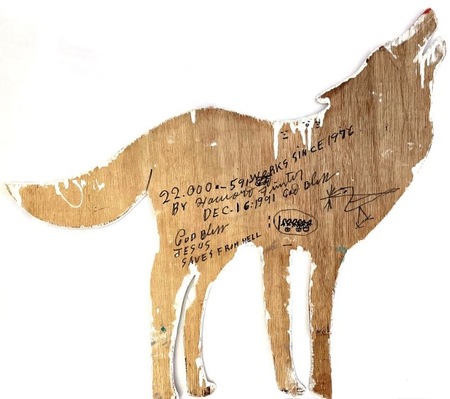 22.000-591 WORKS SINCE 1976
BY Howard Finster GOD Bless
DEC-16:1991
GOD Bless
JESUS
SAVES FROM HELL